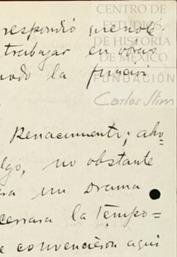 CENTRO DE
ESTUDIOS
DE HISTORIA
DE MÉXICO
FUNDACIÓN
Carlos Slim
respondió que no le
trabajar en otras
la
Renacimiento; aho
lgo, no obstante
un Drama
cerrara la tempo=
e convencieron aquí